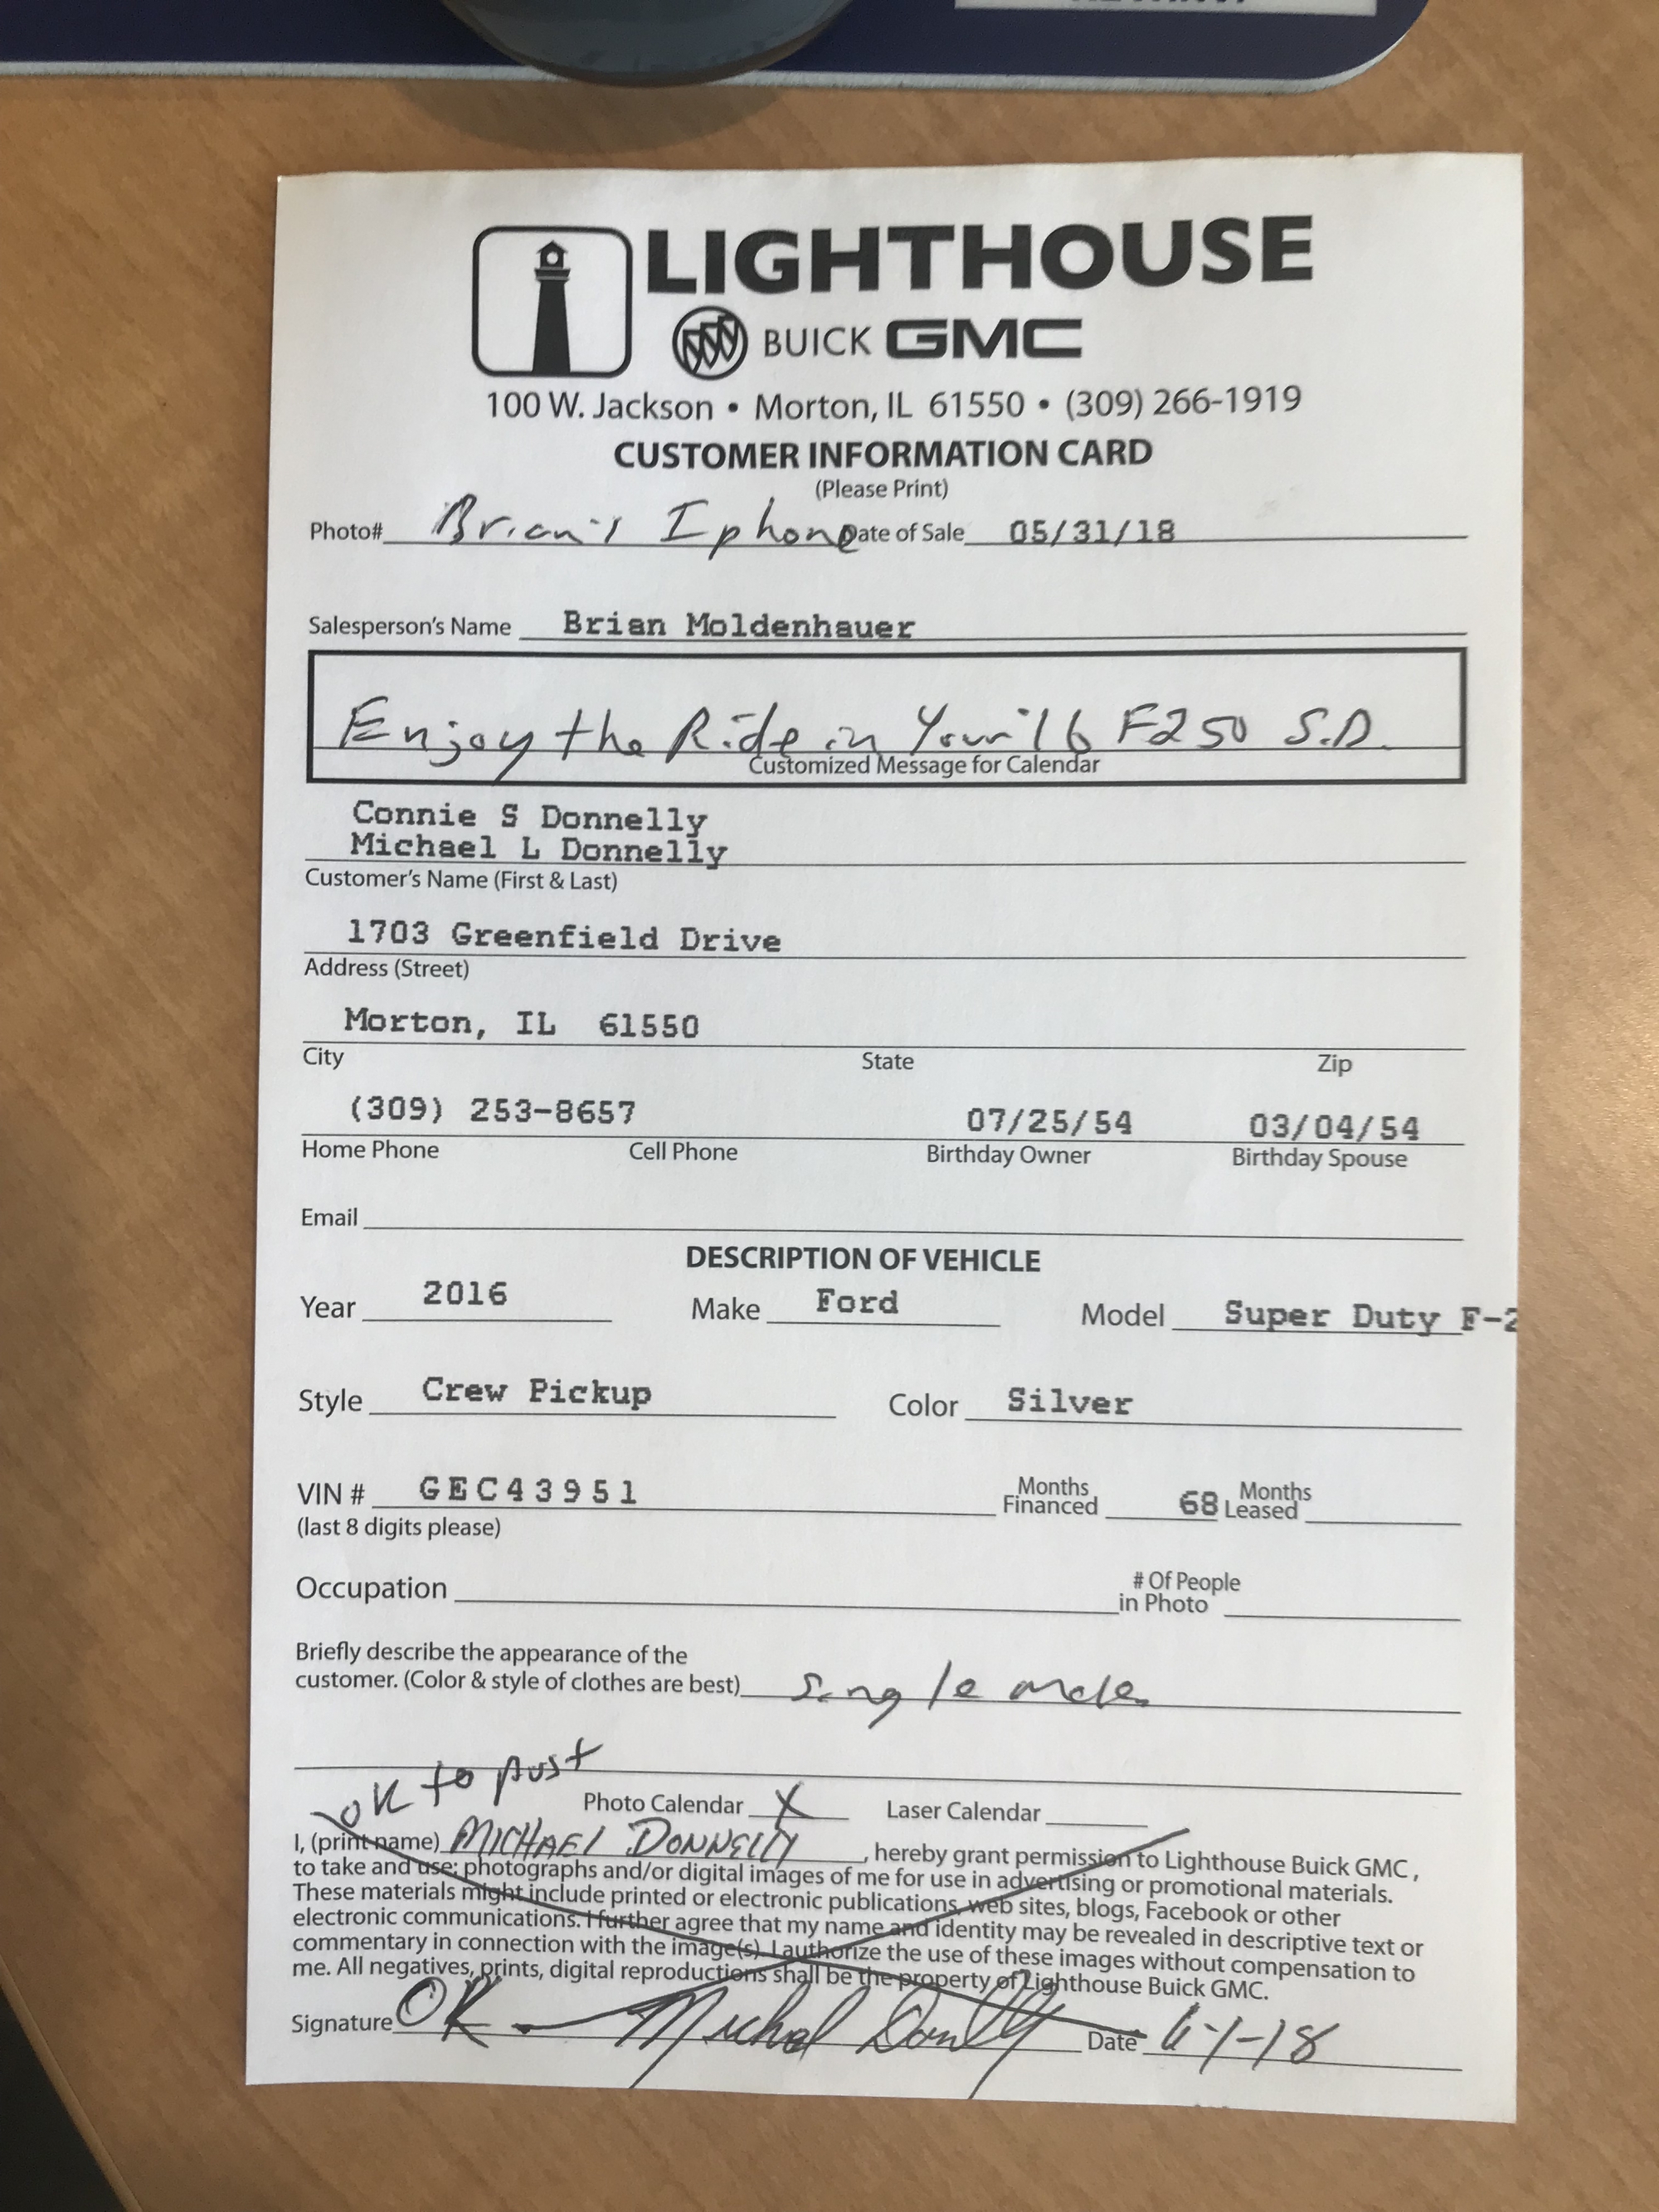 LIGHTHOUSE
BUICK GMC
100 W. Jackson • Morton, IL 61550 • (309) 266-1919
CUSTOMER INFORMATION CARD
(Please Print)
Photo# Brian's Iphone Date of Sale 05/31/18
Salesperson's Name Brian Moldenhauer
Enjoy the Ride in Your '16 F250 S.D.
Customized Message for Calendar
Connie S Donnelly
Michael L Donnelly
Customer's Name (First & Last)
1703 Greenfield Drive
Address (Street)
Morton, IL 61550
City State Zip
(309) 253-8657 07/25/54 03/04/54
Home Phone Cell Phone Birthday Owner Birthday Spouse
Email
DESCRIPTION OF VEHICLE
Year 2016 Make Ford Model Super Duty F-2
Style Crew Pickup Color Silver
VIN # GEC43951 Months Financed 68 Months Leased
(last 8 digits please)
Occupation # Of People in Photo
Briefly describe the appearance of the
customer. (Color & style of clothes are best) single male
OK to post
Photo Calendar X Laser Calendar
I, (print name) MICHAEL DONNELLY, hereby grant permission to Lighthouse Buick GMC,
to take and use; photographs and/or digital images of me for use in advertising or promotional materials.
These materials might include printed or electronic publications, web sites, blogs, Facebook or other
electronic communications. I further agree that my name and identity may be revealed in descriptive text or
commentary in connection with the image(s). I authorize the use of these images without compensation to
me. All negatives, prints, digital reproductions shall be the property of Lighthouse Buick GMC.
Signature OK - Michael Donnelly Date 6-1-18